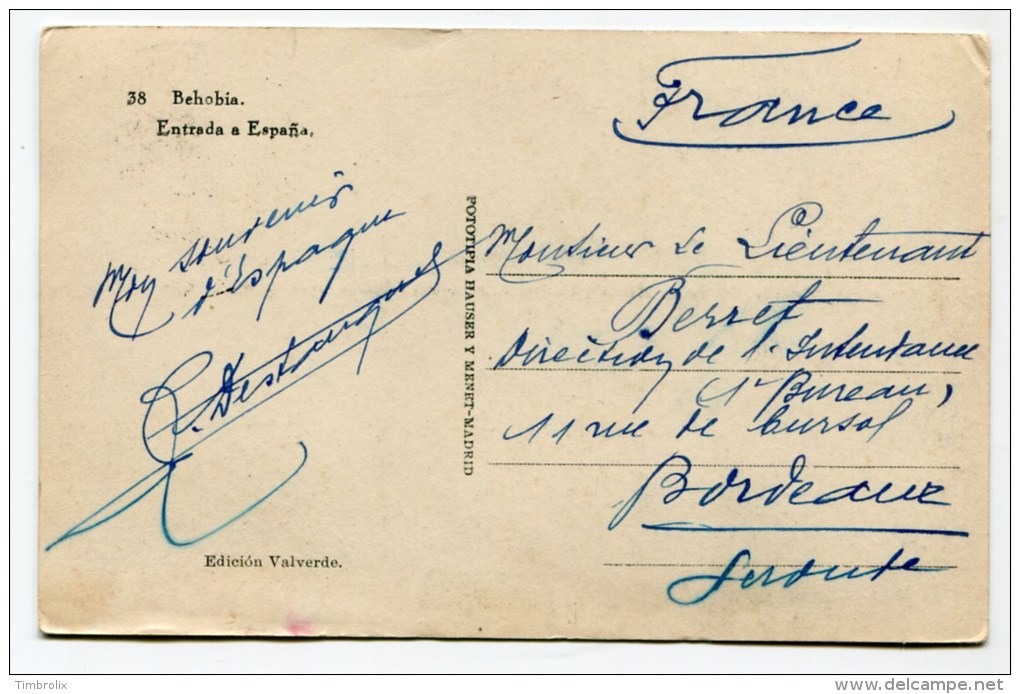 38 Behobia.
Entrada a España,
France
Mon souvenir
d'Espagne
Monsieur le Lieutenant
Berret
Direction de l'Intendance
1r Bureau,
11 rue de Cursol
Bordeaux
Gironde
FOTOTIPIA HAUSER Y MENET-MADRID
Edición Valverde.
Timbrolix
www.delcampe.net